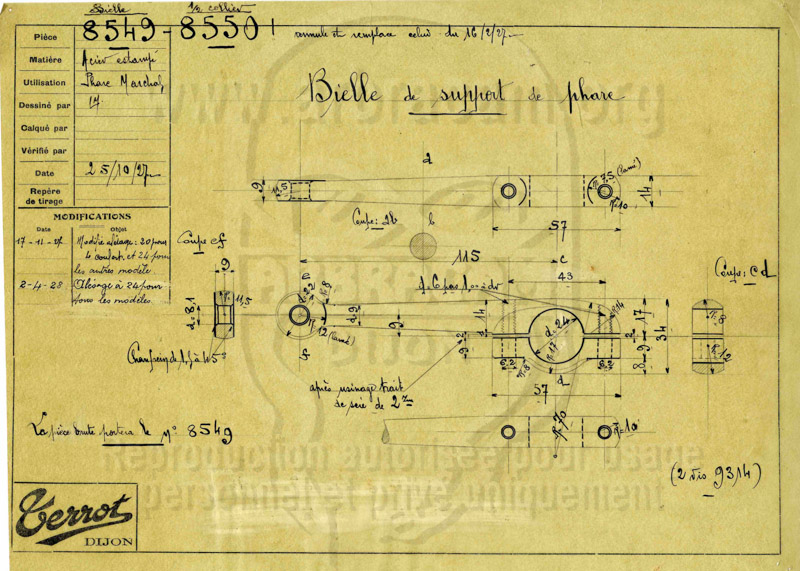 Bielle
1/2 collier
8549-8550
annule et remplace celui du 16/2/27
Pièce
Matière
Acier estampé
Utilisation
Phare Marchal
Dessiné par
Calqué par
Vérifié par
Date
25/10/27
Repère
de tirage
MODIFICATIONS
Date
Objet
17-11-27
Modifié alésage: 20 pour
4 confort et 24 pour
les autres modèle.
2-4-28
Alésage à 24 pour
tous les modèles
Bielle de support de phare
d
9
11,5
r.7,5 (lamé)
r.10
14
57
Coupe: ab
b
115
c
43
Coupe ef
9
11,5
d=8,1
Chanfrein de 1,5 à 45°
e
8,2
r.8
r.12 (lamé)
f
d.9
9
d.6 pas 1,00 à dr
14
r.14
d.24
r.17
17
34
9
8
6,2
r.8
6,2
d
57
Coupe: cd
r.8
r.12
après usinage trait
de scie de 2 m/m
r.10
La pièce brute portera le n° 8549
(2 vis 9314)
Terrot
DIJON
Reproduction autorisée pour usage
personnel et privé uniquement